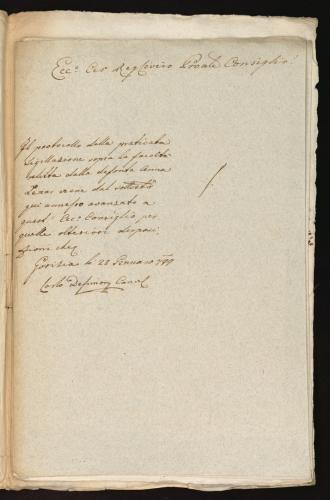 Ecc.o Ces. Reg. Provle Consiglio!
Il protocollo della praticata
sigillazione sopra la facoltà
relitta dalla defonta Anna
viene dal sottosto
qui annesso avanzato a
quest' Ecc.o Consiglio per
quelle ulteriori disposi,
zioni che
Gorizia li 28 Gennaro
Carlo